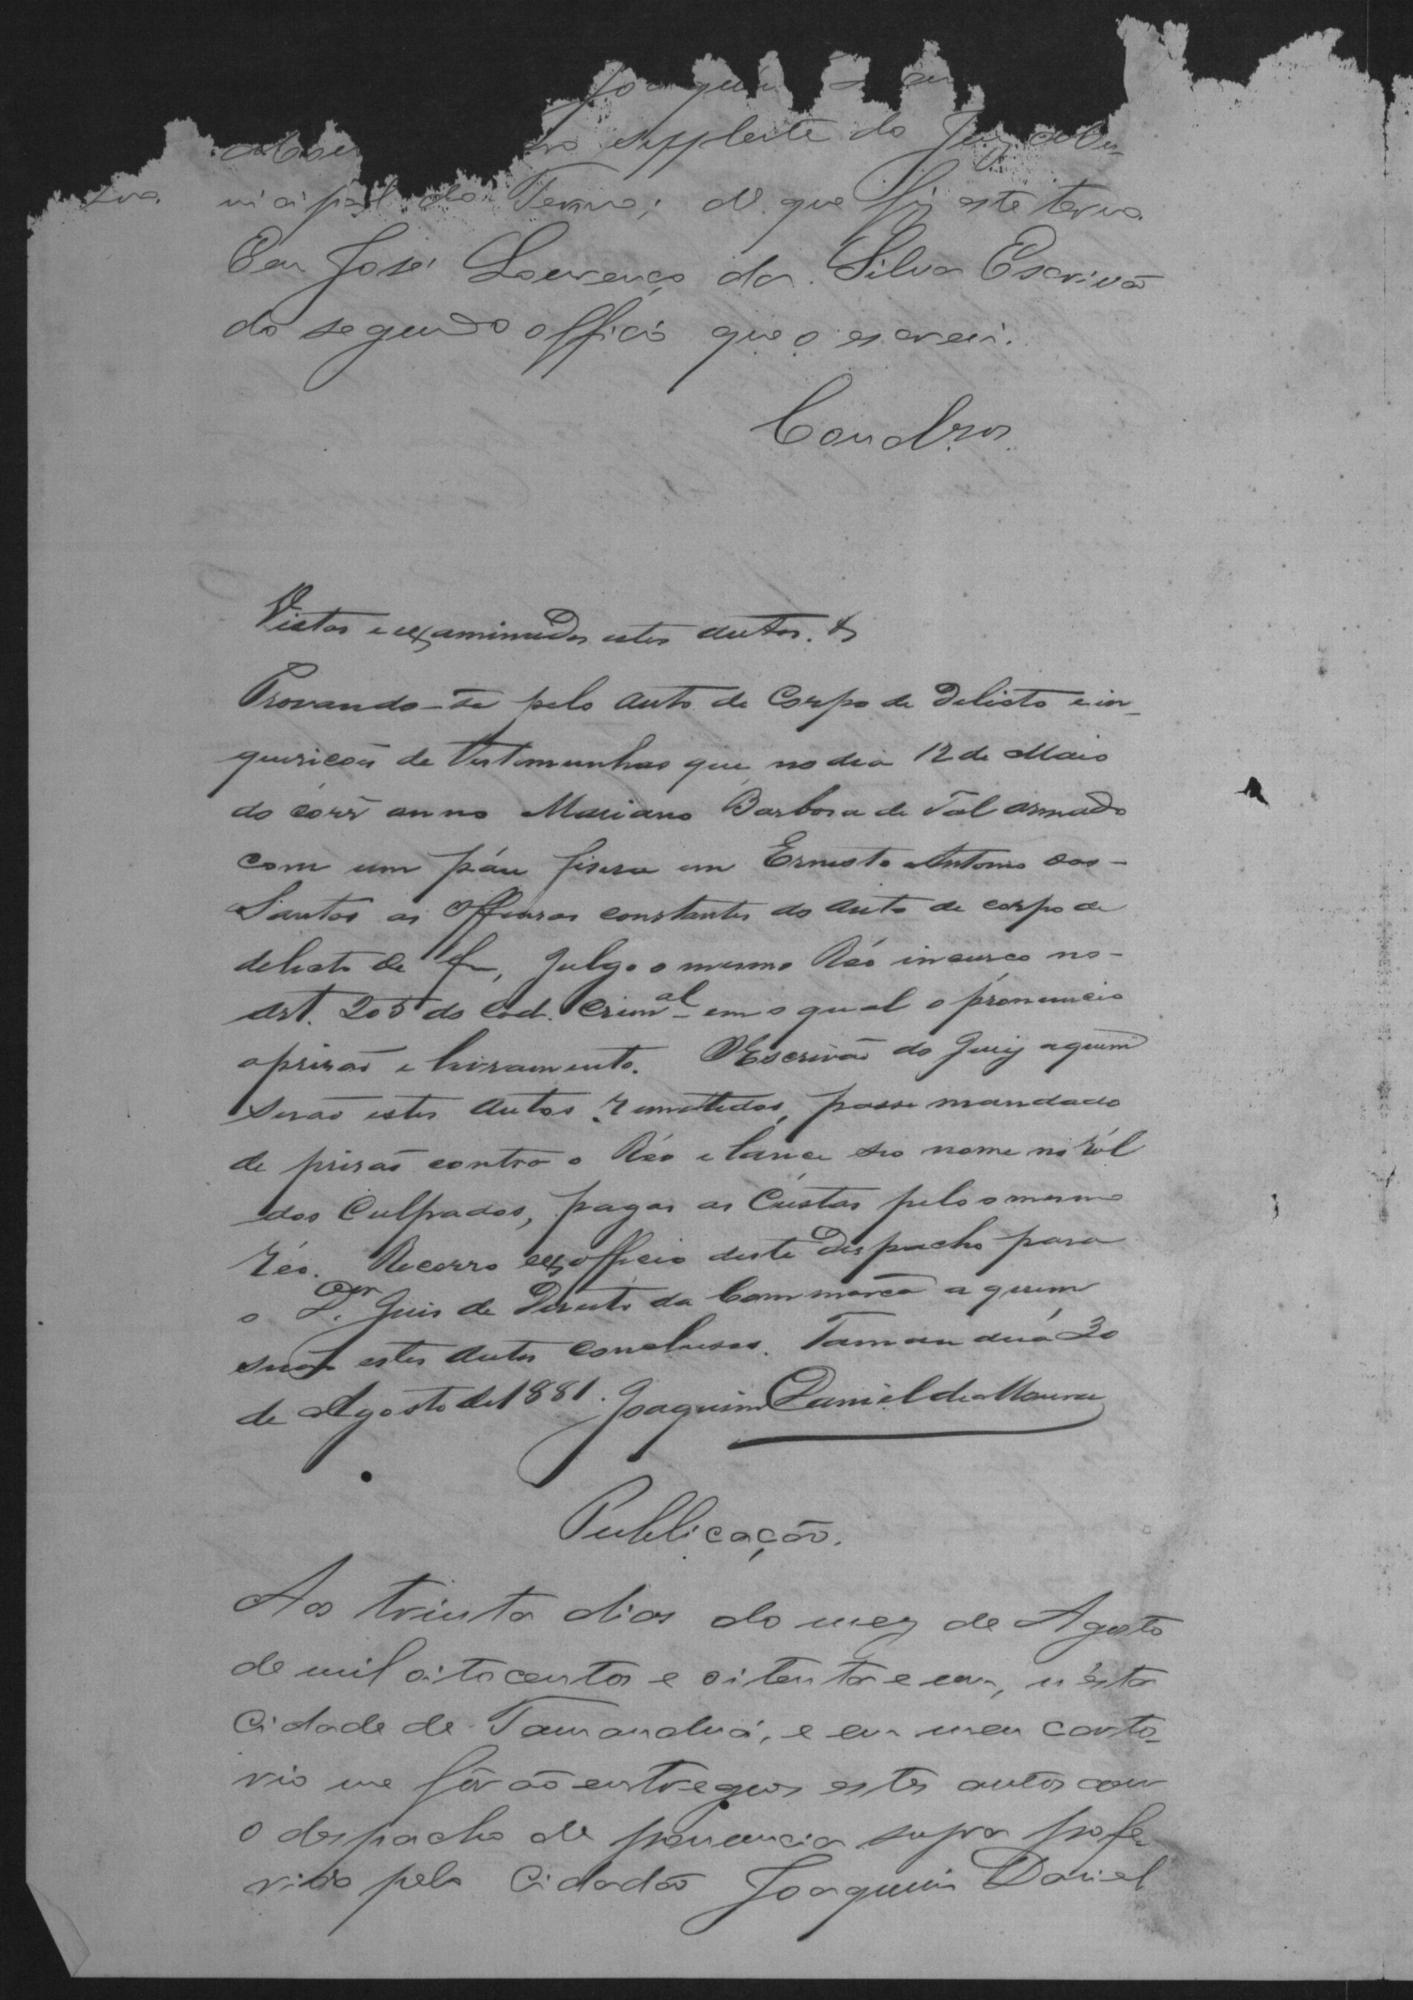 Joaquim
supplente do Juiz Mu-
nicipal do Termo; de que fiz este termo
Eu José Lourenço da Silva Escrivão
do segundo officio que o escrevi.
Condros.
Vistos e examinados estes autos. &
Provando-se pelo auto de Corpo de Delicto e in-
quirição de testemunhas que no dia 12 de Maio
do corr anno Mariano Barbosa de tal armado
com um páu fisera em Ernesto Antonio dos-
Santos as offensas constantes do auto de corpo de
delicto de f, Julgo o mesmo Réo incurso no-
art. 205 do Cod. Criml em o qual o pronuncio
a prisão e livramento. O Escrivão do Juiz a quem
serão estes autos remettidos, passe mandado
de prisão contra o Réo e lance seo nome no ról
dos Culpados, pagas as Custas pelo o mesmo
réo. Recorro ex officio deste Despacho para
o Dr. Juis de Direito da Commarca a quem
serão estes autos conclusos. Tamanduá 30
de Agosto de 1881. Joaquim Daniel de Moura
Publicação.
Aos trinta dias do mez de Agosto
de mil oitocentos e oitenta e um, n'esta
Cidade de Tamanduá, e em meu carto-
rio me fôrão entregues estes autos com
o despacho de pronuncia supra profe
rido pelo Cidadão Joaquim Daniel